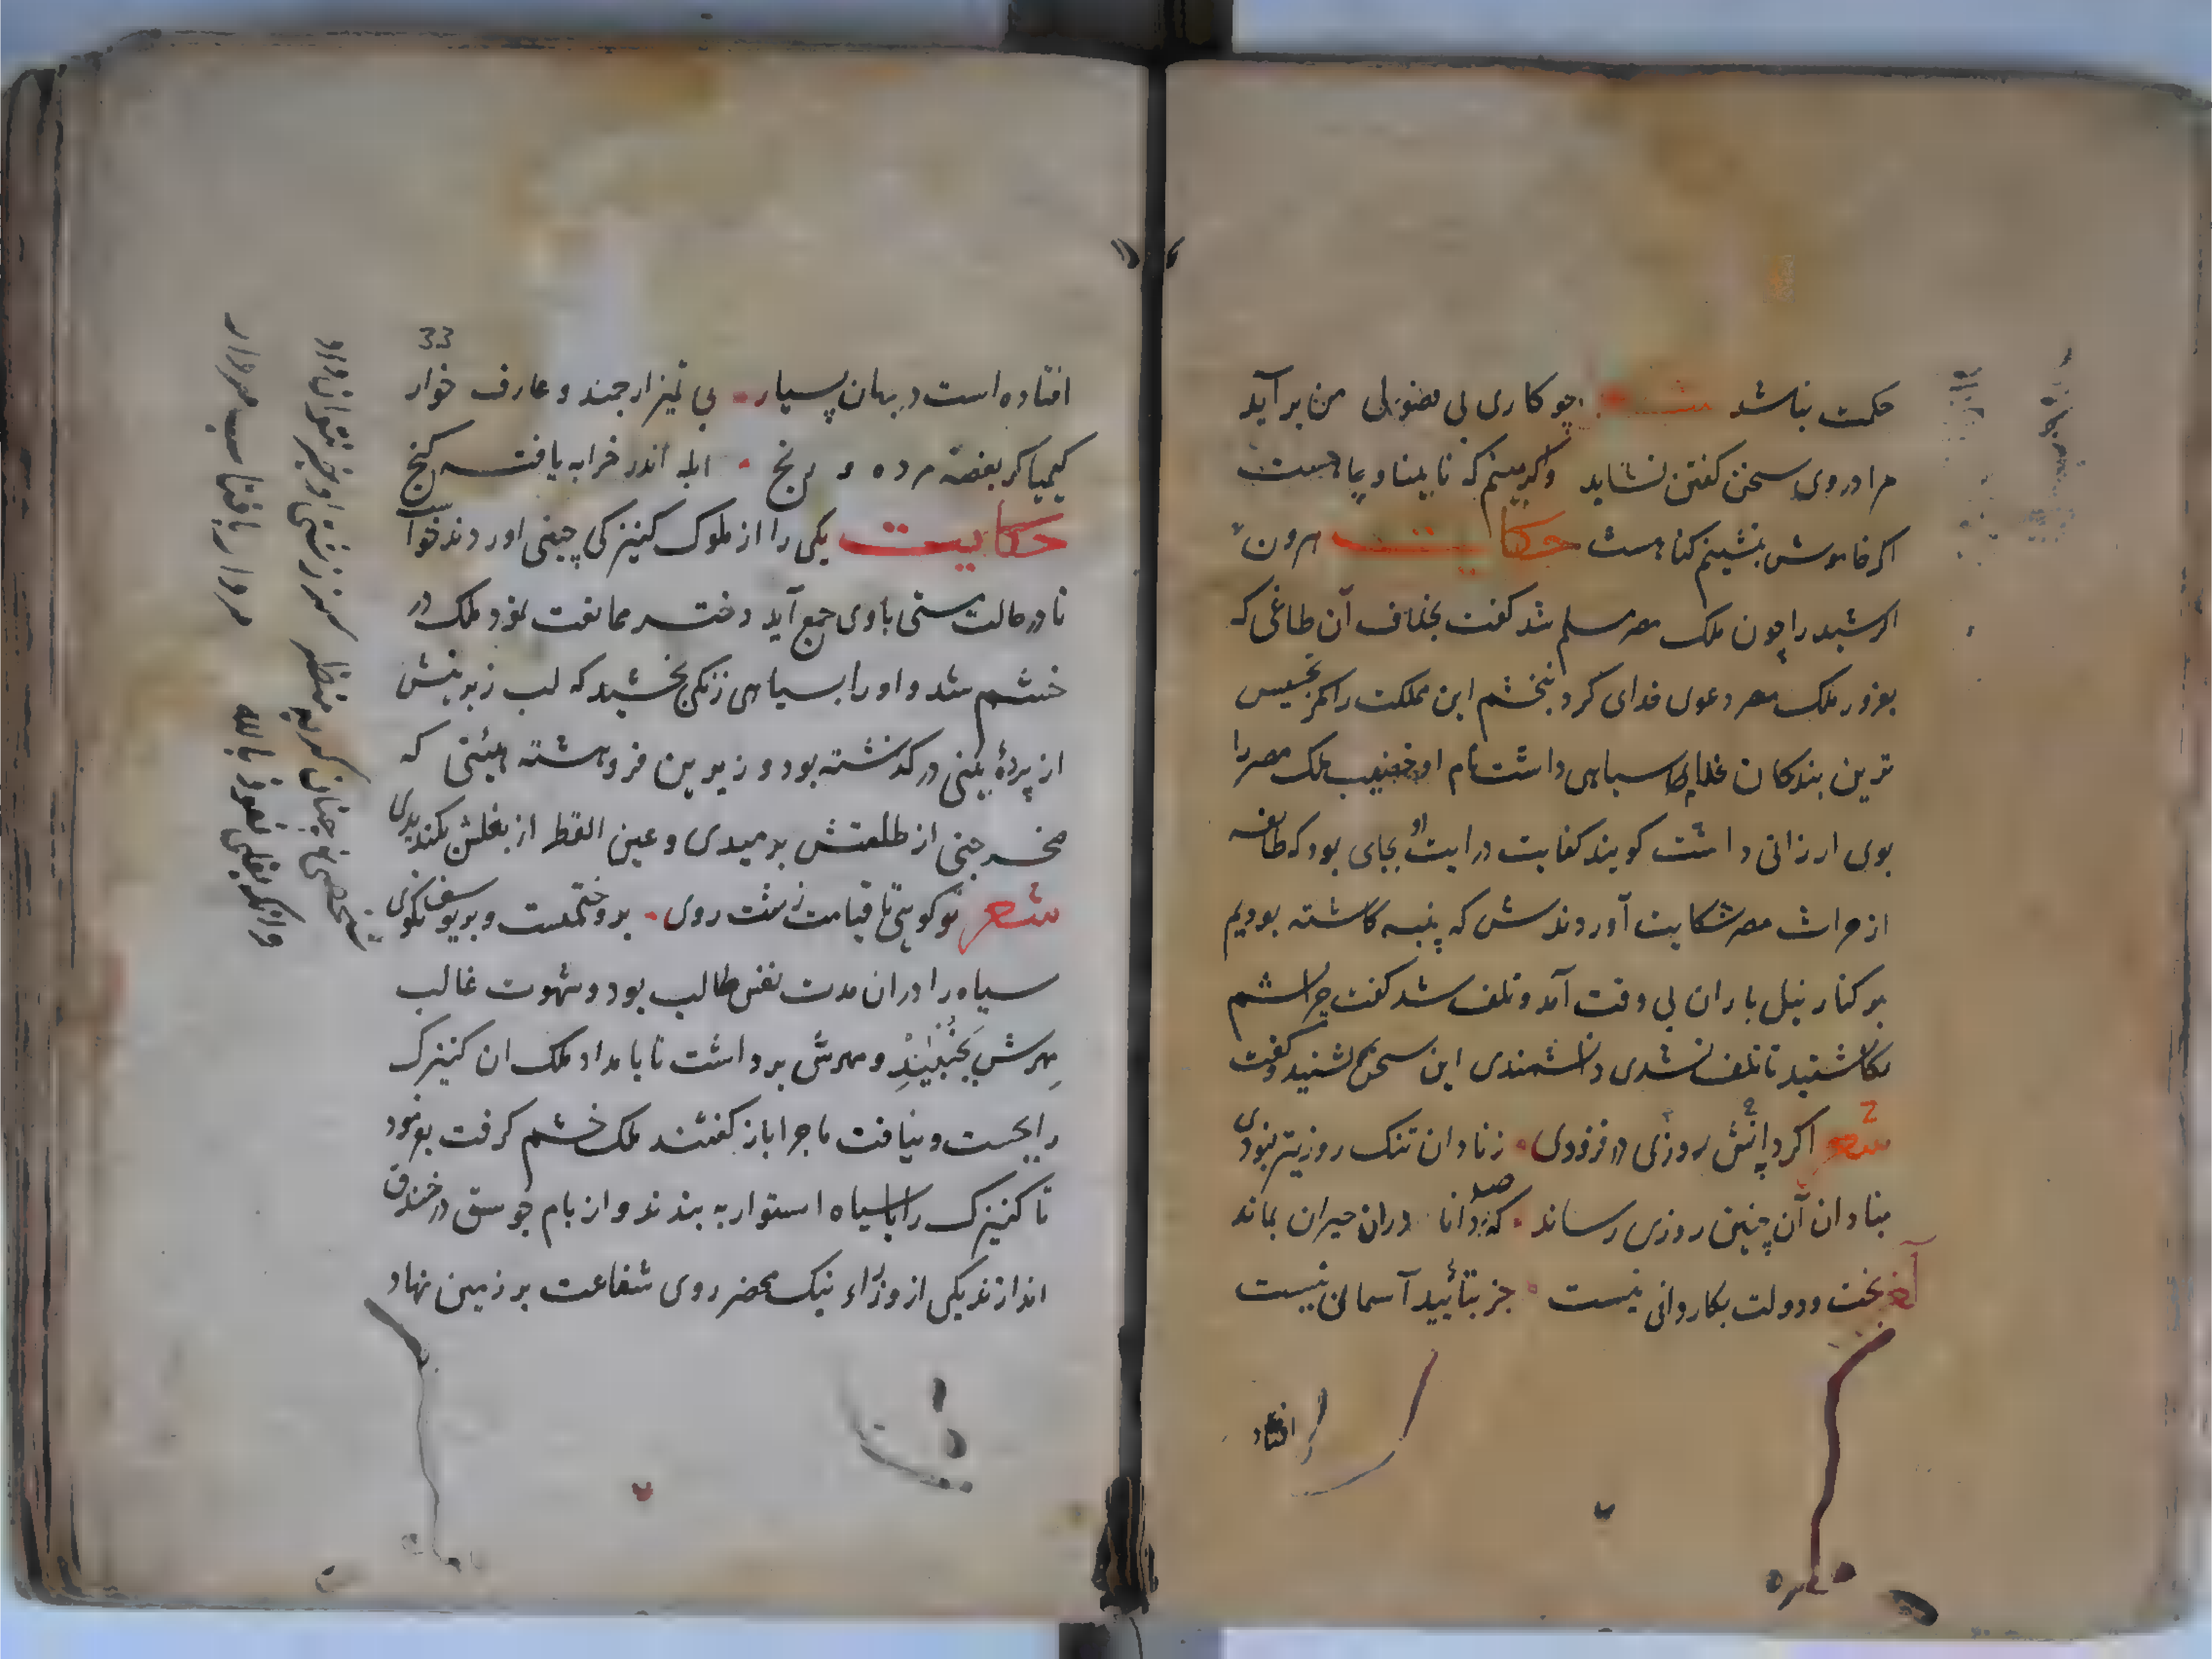 حکمت نباشد مثنوی چو کاری بی فضول من برآید
مرا در وی سخن گفتن نشاید وگر بینم که نابینا و چاهست
اگر خاموش بنشینم گناهست حکایت هرون
الرشید را چون ملک مصر مسلم شد گفت بخلاف آن طاغی که
بغرور ملک مصر دعوی خدای کرد نبخشم این مملکت را مگر بخسیس
ترین بندگان غلامی سیاهی داشت نام او خصیب ملک مصر را
بوی ارزانی داشت گویند کفایت درایت او بجای بود که طائفه
از حراث مصر شکایت آوردندش که پنبه کاشته بودیم
بر کنار نیل باران بی وقت آمد و تلف شد گفت چرا پشم
نکاشتید تا تلف نشدی دانشمندی این سخن بشنید و گفت
شعر اگر دانش روزی در فزودی زنادان تنگ روزیتر نبودی
بنادان آن چنین روزی رساند که صد دانا دران حیران بماند
آخر بخت و دولت بکاردانی نیست جز بتأیید آسمانی نیست
افتاد
33
افتاده است در جهان بسیار بی تمیز ارجمند و عارف خوار
کیمیاگر بغصه مرده و رنج ابله اندر خرابه یافته گنج
حکایت یکی را از ملوک کنیزکی چینی اوردند خواست
تا در حالت مستی باوی جمع آید دختر ممانعت نمود ملک در
خشم شد و او را بسیاهی زنگی بخشید که لب زبرینش
از پردهٔ بینی در گذشته بود و زیرین فروهشته هیئتی که
صخر جنی از طلعتش برمیدی و عین القطر از بغلش بگندیدی
شعر تو گویی تا قیامت زشت روی برو ختمست و بر یوسف نکوی
سیاه را دران مدت نفس طالب بود و شهوت غالب
مهرش بجنبید و مهرش برداشت تا بامداد ملک ان کنیزک
را بجست و نیافت ماجرا باز گفتند ملک خشم گرفت بفرمود
تا کنیزک را با سیاه استوار به بندند و از بام جوسق در خندق
اندازند یکی از وزراء نیک محضر روی شفاعت بر زمین نهاد
شخصی نه چنان کریه منظر کز زشتی او خبر توان داد
وانگه بغلی نعوذ بالله مردار بافتاب مرداد